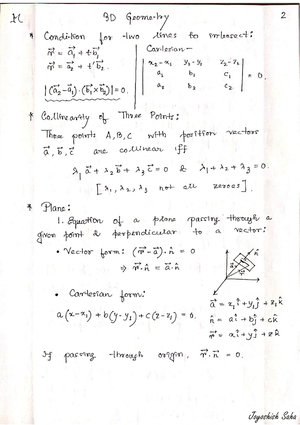 3D Geometry
2
* Condition for two lines to intersect:
r⃗ = a⃗₁ + t b⃗₁
r⃗ = a⃗₂ + t' b⃗₂
|(a⃗₂-a⃗₁)·(b⃗₁×b⃗₂)| = 0.
Cartesian –
| x₂-x₁ y₂-y₁ z₂-z₁ |
| a₁ b₁ c₁ | = 0.
| a₂ b₂ c₂ |
* Collinearity of Three Points:
Three points A, B, C with position vectors
a⃗, b⃗, c⃗ are collinear iff
λ₁a⃗ + λ₂b⃗ + λ₃c⃗ = 0 & λ₁+λ₂+λ₃ = 0.
[λ₁, λ₂, λ₃ not all zeroes].
* Plane:
1. Equation of a plane passing through a
given point & perpendicular to a vector:
• Vector form: (r⃗-a⃗)·n̂ = 0
⇒ r⃗·n̂ = a⃗·n̂
• Cartesian form:
a(x-x₁) + b(y-y₁) + c(z-z₁) = 0.
a⃗ = x₁î + y₁ĵ + z₁k̂
n̂ = aî + bĵ + ck̂
r⃗ = xî + yĵ + zk̂
If passing through origin, r⃗·n̂ = 0.
Joyoshish Saha